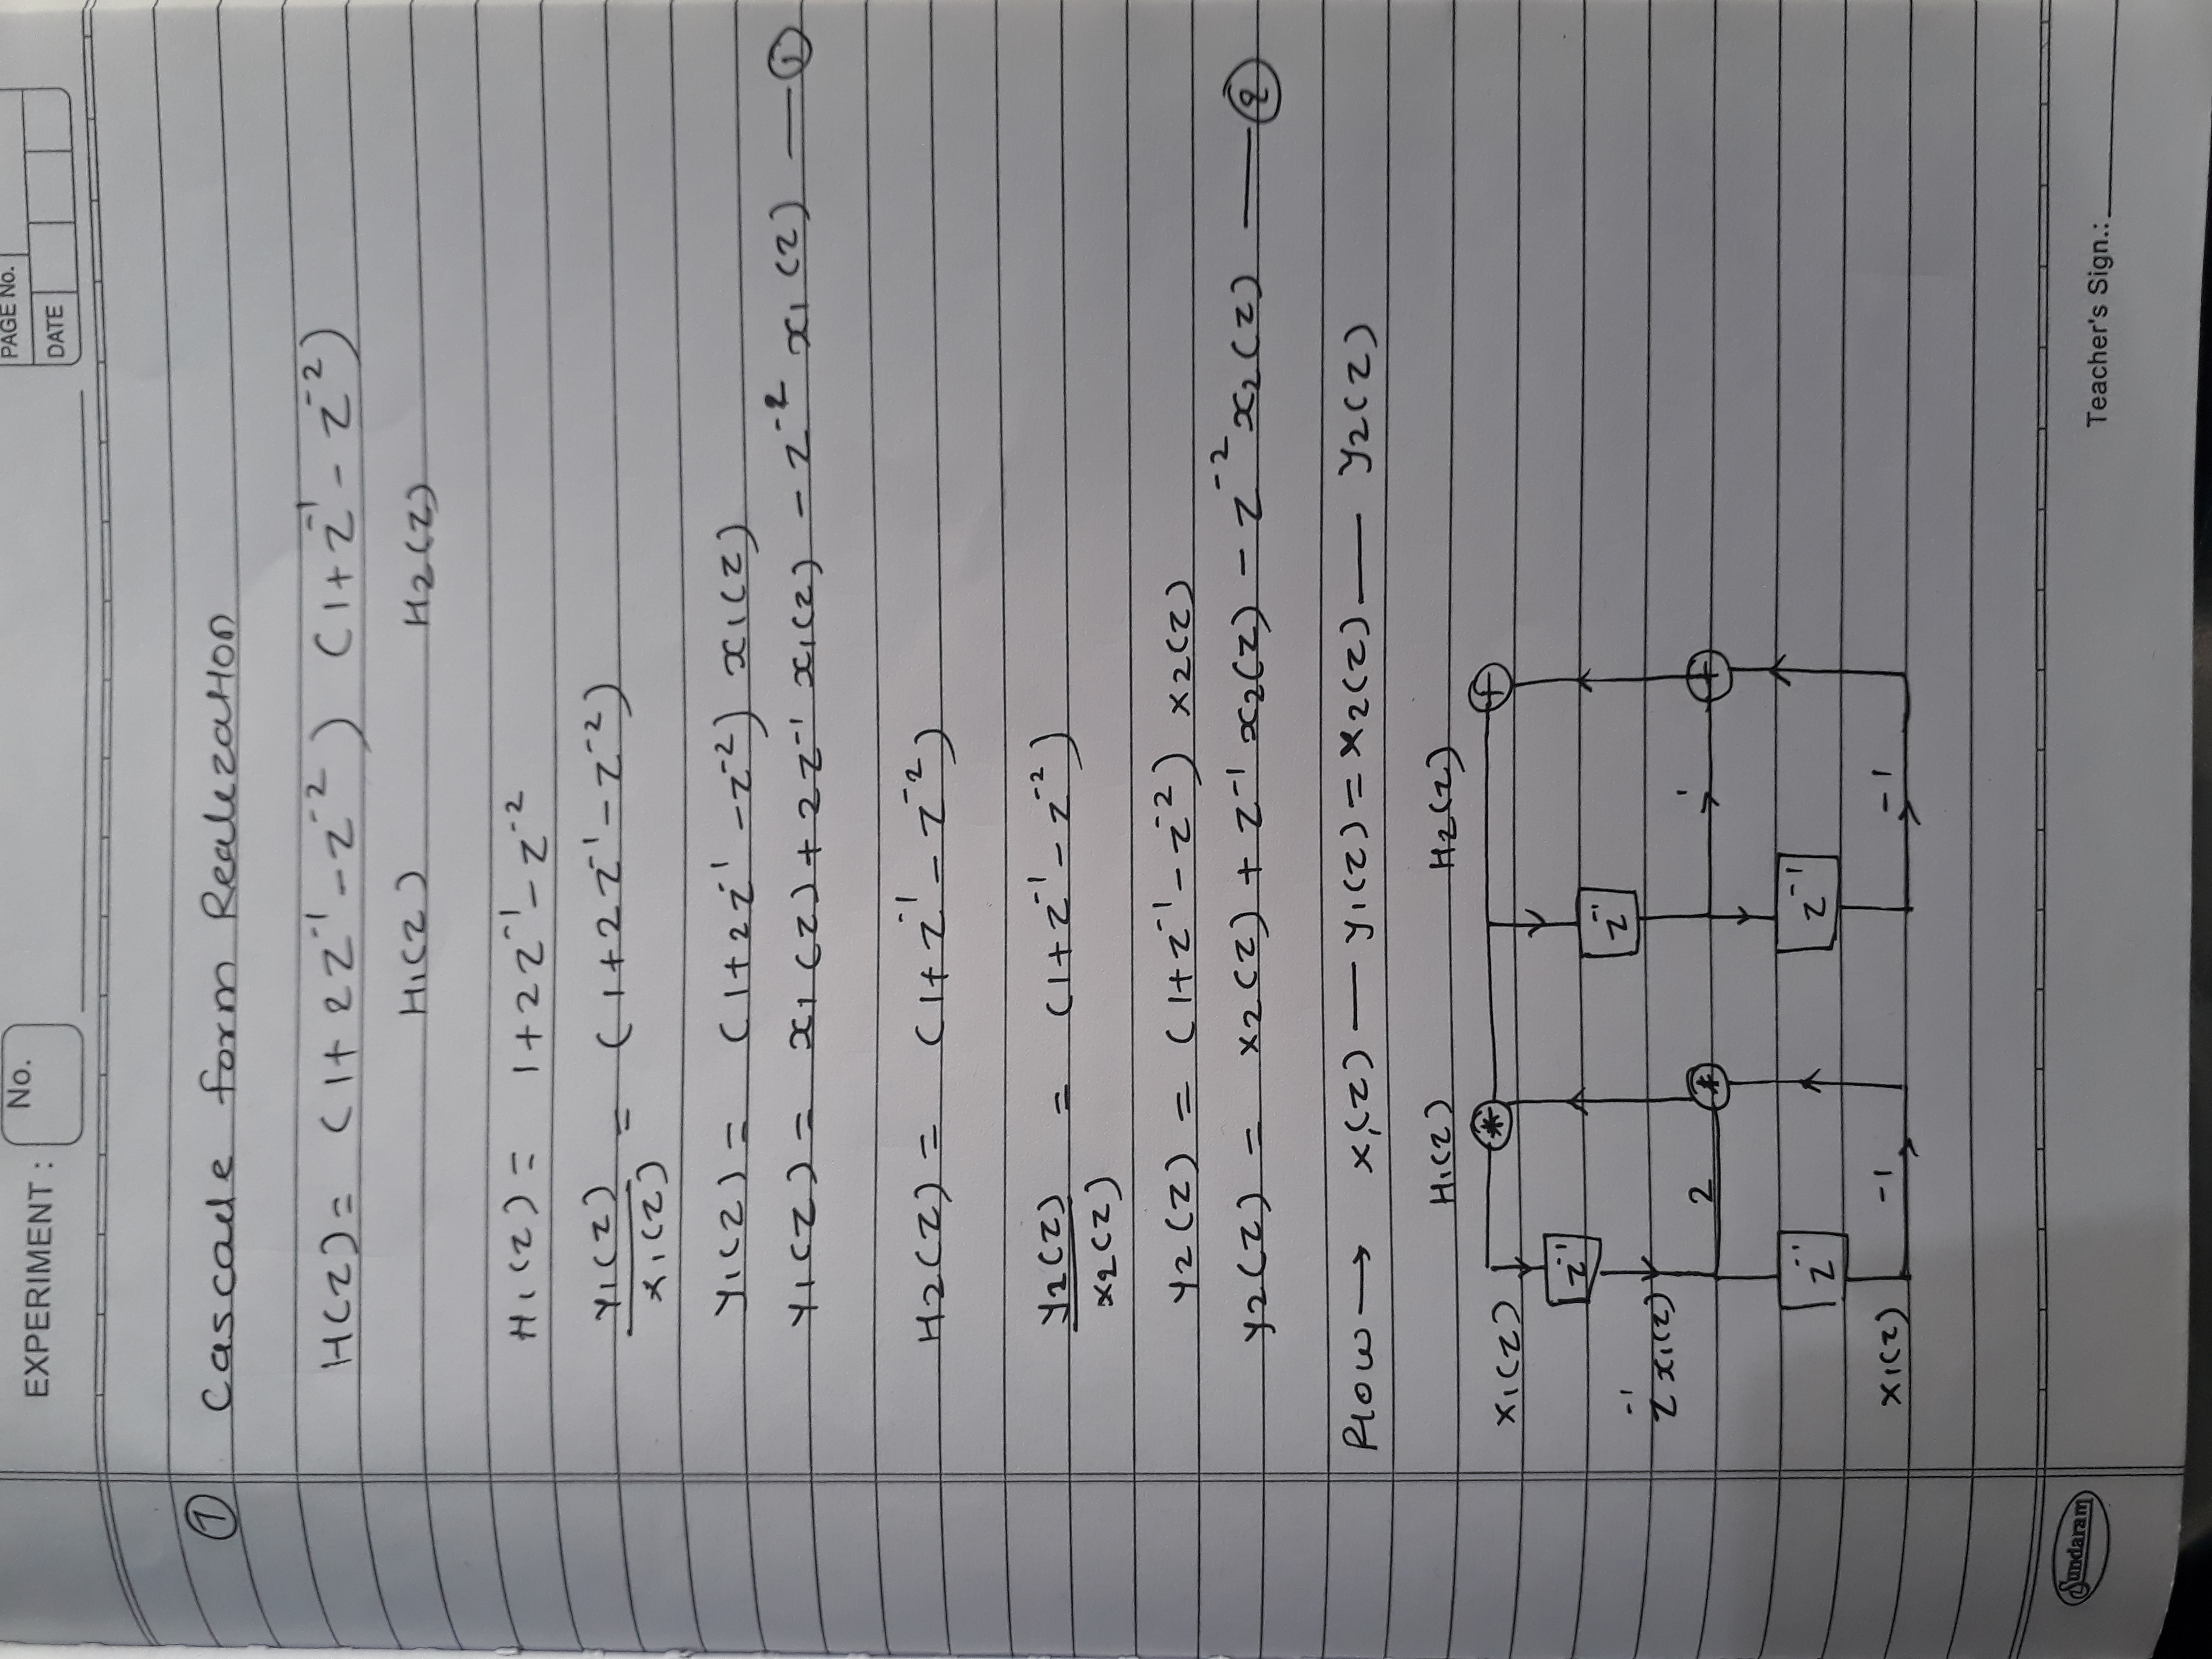 EXPERIMENT :
No.
PAGE No.
DATE
① Cascade form Realization
H(z) = (1+2z⁻¹-z⁻²) (1+z⁻¹-z⁻²)
H₁(z) H2(z)
H₁(z) = 1+2z⁻¹-z⁻²
y₁(z) / x₁(z) = (1+2z⁻¹-z⁻²)
y₁(z) = (1+2z⁻¹-z⁻²) x₁(z)
y₁(z) = x₁(z) + 2z⁻¹ x₁(z) - z⁻² x₁(z) — ①
H2(z) = (1+z⁻¹-z⁻²)
y2(z) / x2(z) = (1+z⁻¹-z⁻²)
y2(z) = (1+z⁻¹-z⁻²) x2(z)
y2(z) = x2(z) + z⁻¹ x2(z) - z⁻² x2(z) — ②
Flow → x₁(z) — y₁(z) = x2(z) — y2(z)
H₁(z) H2(z)
x₁(z) * +
z⁻¹ z⁻¹
z⁻¹ x₁(z)
2 * 1 +
z⁻¹ z⁻¹
x₁(z) -1 -1
Sundaram
Teacher's Sign.: